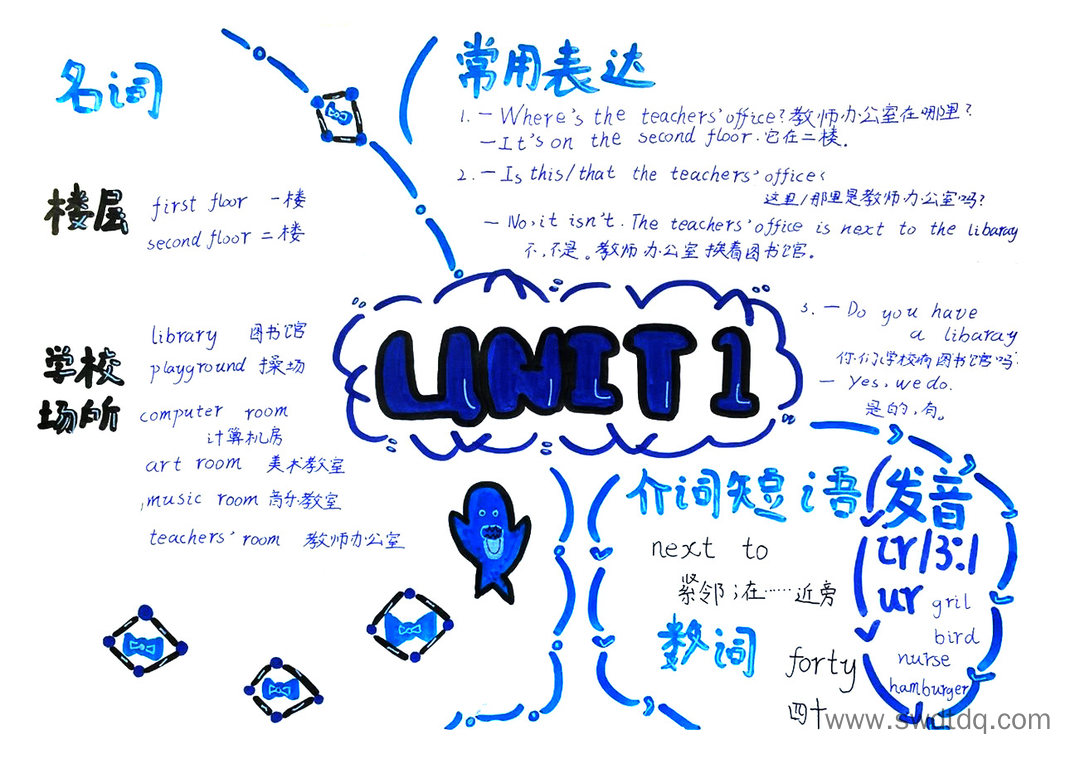 名词
楼层
first floor 一楼
second floor 二楼
学校
场所
library 图书馆
playground 操场
computer room
计算机房
art room 美术教室
music room 音乐教室
teachers' room 教师办公室
常用表达
1. — Where's the teachers' office? 教师办公室在哪里?
— It's on the second floor. 它在二楼.
2. — Is this/that the teachers' office?
这里/那里是教师办公室吗?
— No, it isn't. The teachers' office is next to the libaray
不,不是。教师办公室挨着图书馆.
UNIT 1
3. — Do you have
a libaray
你们学校有图书馆吗?
— Yes, we do.
是的,有。
介词短语
next to
紧邻;在……近旁
数词
forty
四十
发音
ir/ɜ:/
ur
gril
bird
nurse
hamburger
www.swdtdq.com